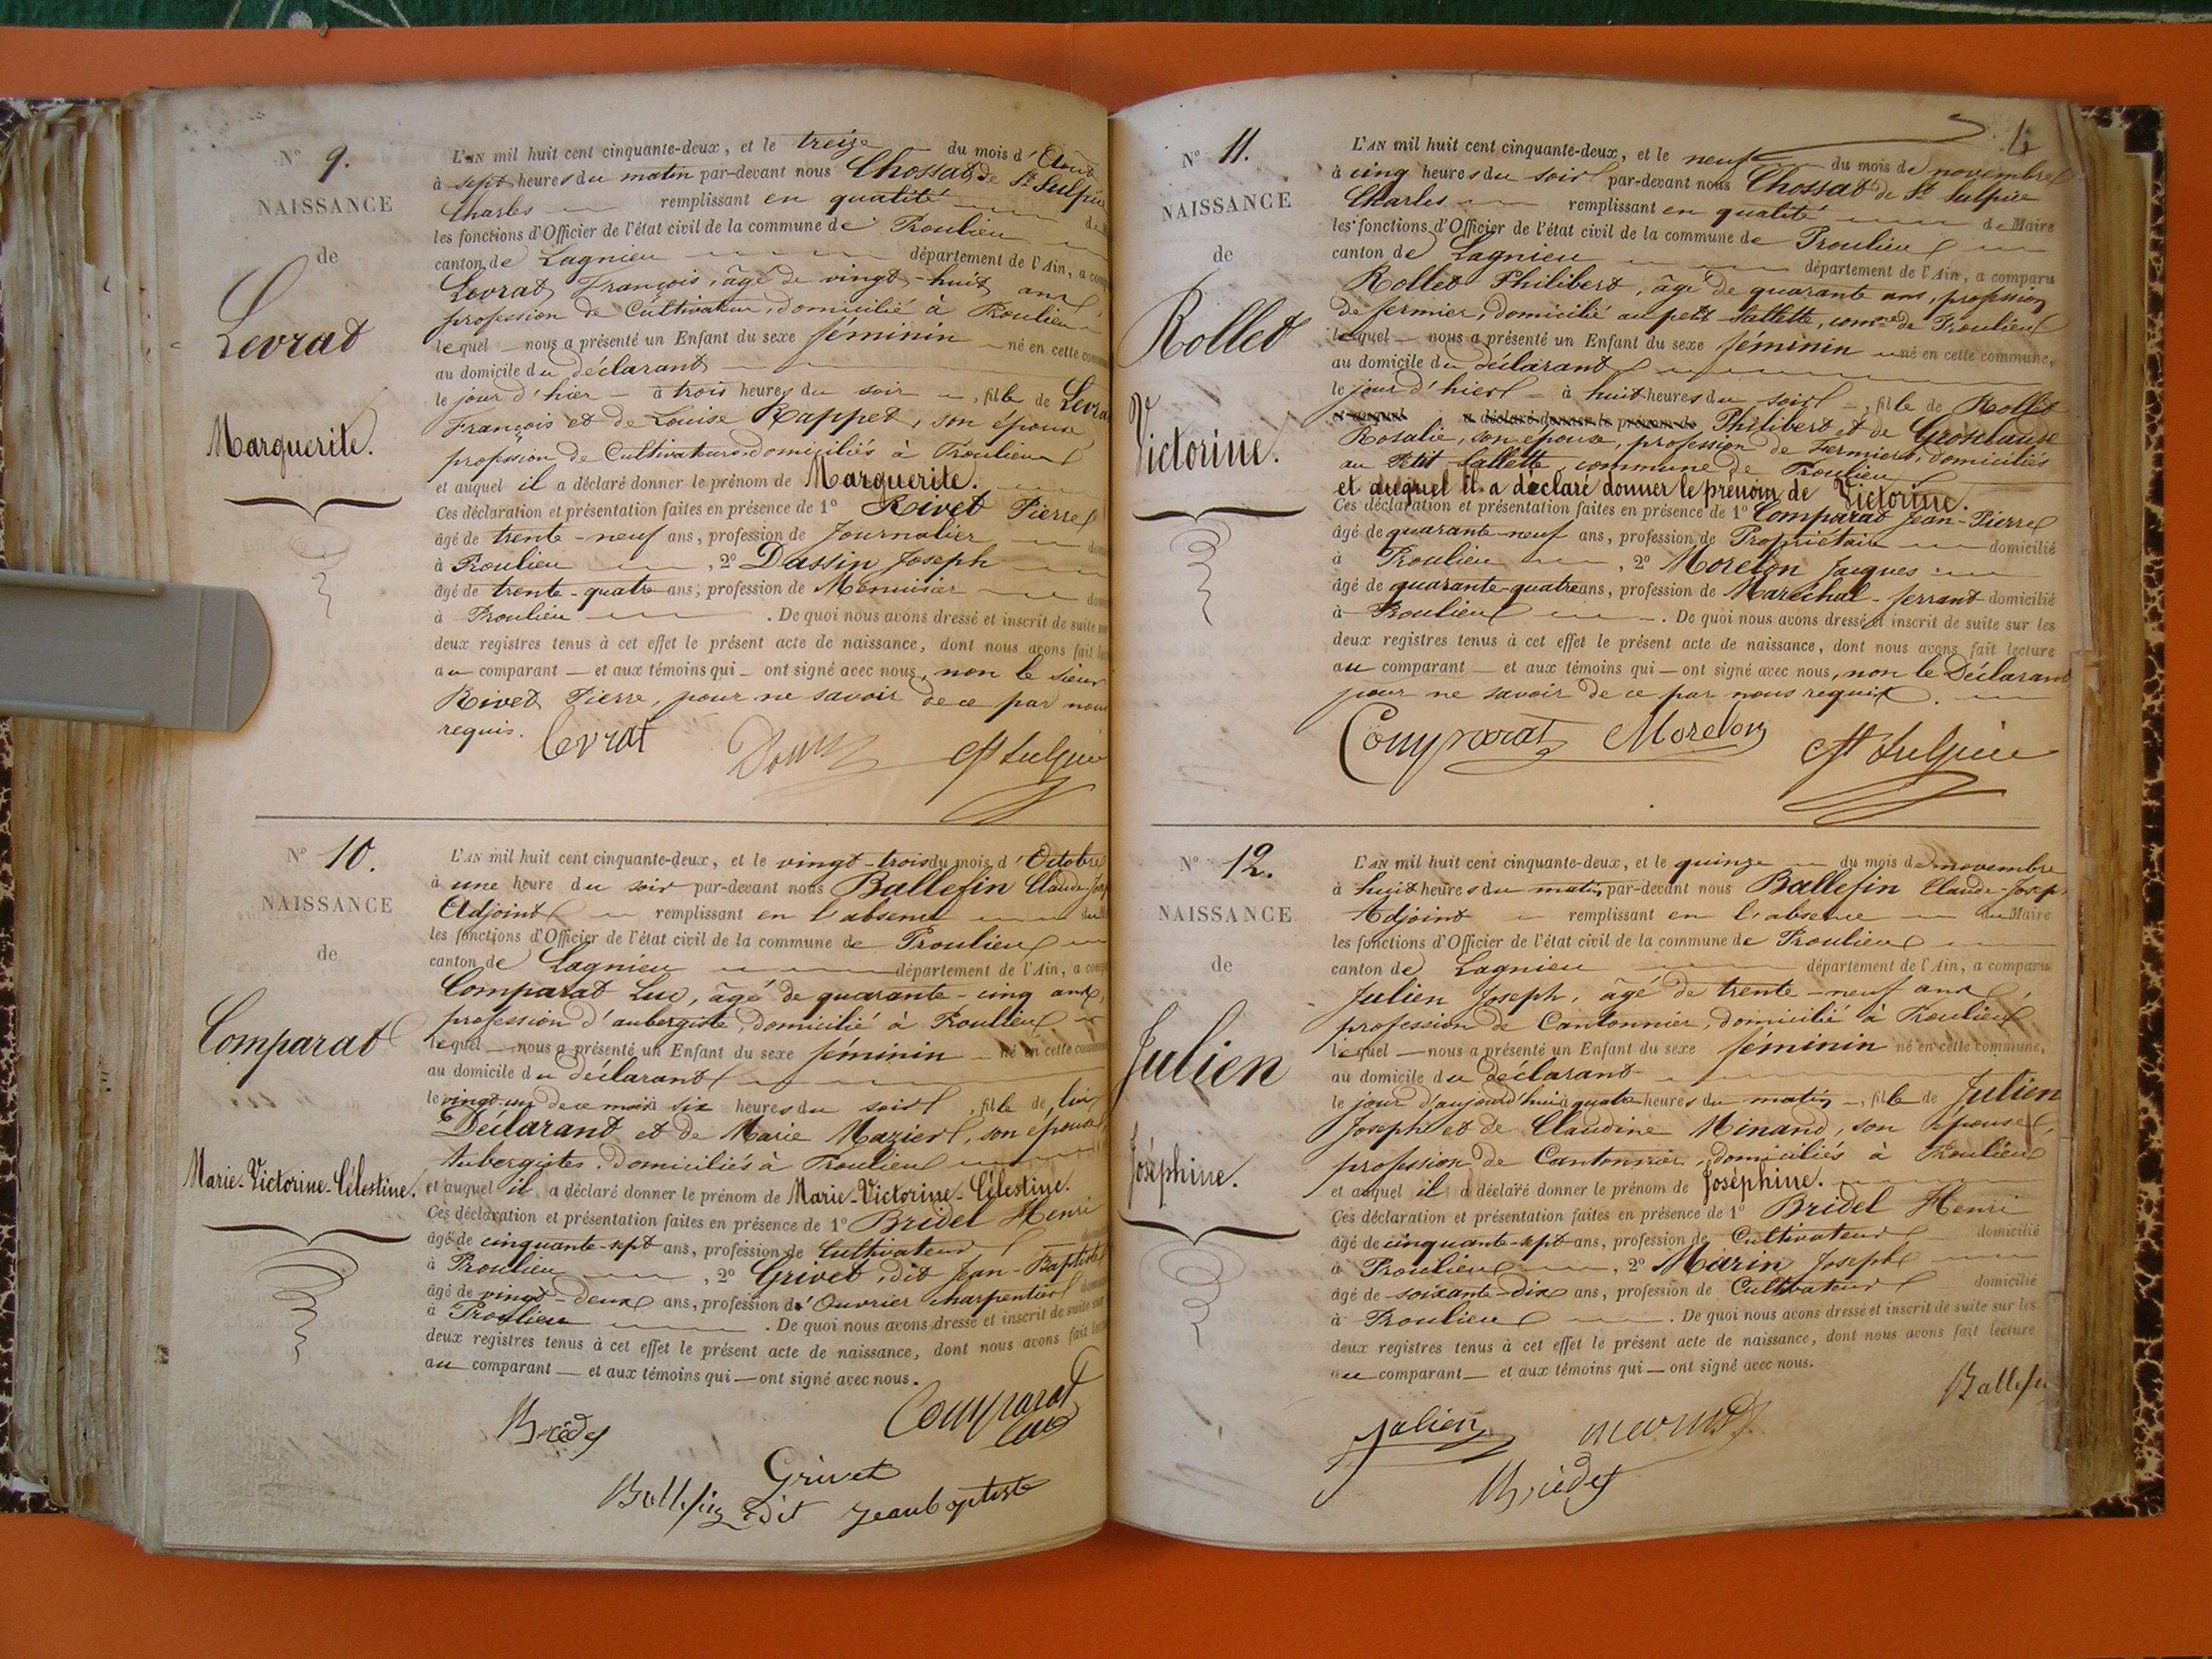 N° 9.
NAISSANCE
de
Levrat
Marguerite.
L'AN mil huit cent cinquante-deux, et le treize du mois d'Août
à sept heures du matin par-devant nous Chossat de St Sulpice
Charles remplissant en qualité de
les fonctions d'Officier de l'état civil de la commune de Proulieu
canton de Lagnieu département de l'Ain, a
Levrat François, âgé de vingt-huit ans,
profession de Cultivateur, domicilié à Proulieu
lequel nous a présenté un Enfant du sexe féminin né en cette
au domicile du déclarant
le jour d'hier à trois heures du soir, fille de Levrat
François et de Louise Rappet, son épouse
profession de Cultivateurs domiciliés à Proulieu
et auquel il a déclaré donner le prénom de Marguerite.
Ces déclaration et présentation faites en présence de 1° Rivet Pierre
âgé de trente-neuf ans, profession de Journalier
à Proulieu, 2° Dassin Joseph
âgé de trente-quatre ans, profession de Menuisier
à Proulieu. De quoi nous avons dressé et inscrit de suite sur
deux registres tenus à cet effet le présent acte de naissance, dont nous avons fait
au comparant et aux témoins qui ont signé avec nous, non le sieur
Rivet Pierre, pour ne savoir de ce par nous
requis.
Levrat St Sulpice
N° 10.
NAISSANCE
de
Comparat
Marie-Victorine-Célestine.
L'AN mil huit cent cinquante-deux, et le vingt-trois du mois d'Octobre
à une heure du soir par-devant nous Ballefin Claude-
Adjoint remplissant en l'absence du
les fonctions d'Officier de l'état civil de la commune de Proulieu
canton de Lagnieu département de l'Ain, a
Comparat Luc, âgé de quarante-cinq ans,
profession d'aubergiste, domicilié à Proulieu
lequel nous a présenté un Enfant du sexe féminin né en cette
au domicile du déclarant
le vingt-un de ce mois à six heures du soir, fille de lui
Déclarant et de Marie Mazier, son épouse,
Aubergistes, domiciliés à Proulieu
et auquel il a déclaré donner le prénom de Marie-Victorine-Célestine.
Ces déclaration et présentation faites en présence de 1° Bridel Henri
âgé de cinquante-sept ans, profession de Cultivateur
à Proulieu, 2° Grivet, dit Jean-Baptiste
âgé de vingt-deux ans, profession d'Ouvrier charpentier
à Proulieu. De quoi nous avons dressé et inscrit de suite sur
deux registres tenus à cet effet le présent acte de naissance, dont nous avons fait
au comparant et aux témoins qui ont signé avec nous.
Comparat Luc
Grivet
Ballefin dit Jeanbaptiste
N° 11.
NAISSANCE
de
Rollet
Victorine.
L'AN mil huit cent cinquante-deux, et le neuf du mois de novembre
à cinq heures du soir par-devant nous Chossat de St Sulpice
Charles remplissant en qualité de Maire
les fonctions d'Officier de l'état civil de la commune de Proulieu
canton de Lagnieu département de l'Ain, a comparu
Rollet Philibert, âgé de quarante ans, profession
de fermier, domicilié au petit Sallette, comne de Proulieu
lequel nous a présenté un Enfant du sexe féminin né en cette commune,
au domicile du déclarant
le jour d'hier à huit heures du soir, fille de Rollet
et auquel a déclaré donner le prénom de Philibert et de Grosclaude
Rosalie, son épouse, profession de Fermiers, domiciliés
au Petit Sallette, commune de Proulieu
et auquel il a déclaré donner le prénom de Victorine.
Ces déclaration et présentation faites en présence de 1° Comparat Jean-Pierre
âgé de quarante-neuf ans, profession de Propriétaire domicilié
à Proulieu, 2° Morelon Jacques
âgé de quarante-quatre ans, profession de Maréchal-ferrant domicilié
à Proulieu. De quoi nous avons dressé et inscrit de suite sur les
deux registres tenus à cet effet le présent acte de naissance, dont nous avons fait lecture
au comparant et aux témoins qui ont signé avec nous, non le Déclarant
pour ne savoir de ce par nous requis.
Comparat Morelon St Sulpice
N° 12.
NAISSANCE
de
Julien
Joséphine.
L'AN mil huit cent cinquante-deux, et le quinze du mois de novembre
à huit heures du matin par-devant nous Ballefin Claude-Josep
Adjoint remplissant en l'absence du Maire
les fonctions d'Officier de l'état civil de la commune de Proulieu
canton de Lagnieu département de l'Ain, a comparu
Julien Joseph, âgé de trente-neuf ans,
profession de Cantonnier, domicilié à Proulieu
lequel nous a présenté un Enfant du sexe féminin né en cette commune,
au domicile du déclarant
le jour d'aujourd'hui à quatre heures du matin, fille de Julien
Joseph et de Claudine Minand, son épouse,
profession de Cantonnier, domiciliés à Proulieu
et auquel il a déclaré donner le prénom de Joséphine.
Ces déclaration et présentation faites en présence de 1° Bridel Henri
âgé de cinquante-sept ans, profession de Cultivateur domicilié
à Proulieu, 2° Marin Joseph
âgé de soixante-dix ans, profession de Cultivateur domicilié
à Proulieu. De quoi nous avons dressé et inscrit de suite sur les
deux registres tenus à cet effet le présent acte de naissance, dont nous avons fait lecture
au comparant et aux témoins qui ont signé avec nous.
Ballefin
Julien